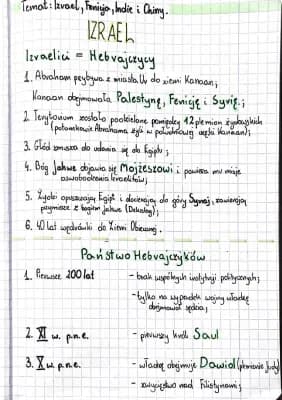 Temat: Izrael, Fenicja, Indie i Chiny.
IZRAEL
Izraelici = Hebrajczycy
1. Abraham przybywa z miasta Ur do ziemi Kanaan;
Kanaan obejmowała Palestynę, Fenicję i Syrię;
2. Terytorium zostało podzielone pomiędzy 12 plemion żydowskich
(potomkowie Abrahama, żyli w południowej części Kanaan);
3. Głód zmusza do udania się do Egiptu;
4. Bóg Jahwe objawia się Mojżeszowi i powierza mu misję
oswobodzenia Izraelitów;
5. Żydzi opuszczają Egipt i docierają do góry Synaj, zawierają
przymierze z bogiem Jahwe (Dekalog);
6. 40 lat wędrówki do Ziemi Obiecanej.
Państwo Hebrajczyków
1. Pierwsze 200 lat - brak wspólnych instytucji politycznych;
- tylko na wypadek wojny władzę
obejmowali sędzia;
2. XI w. p.n.e. - pierwszy król Saul
3. X w. p.n.e. - władzę obejmuje Dawid (plemienie Judy)
- zwycięstwo nad Filistynami;